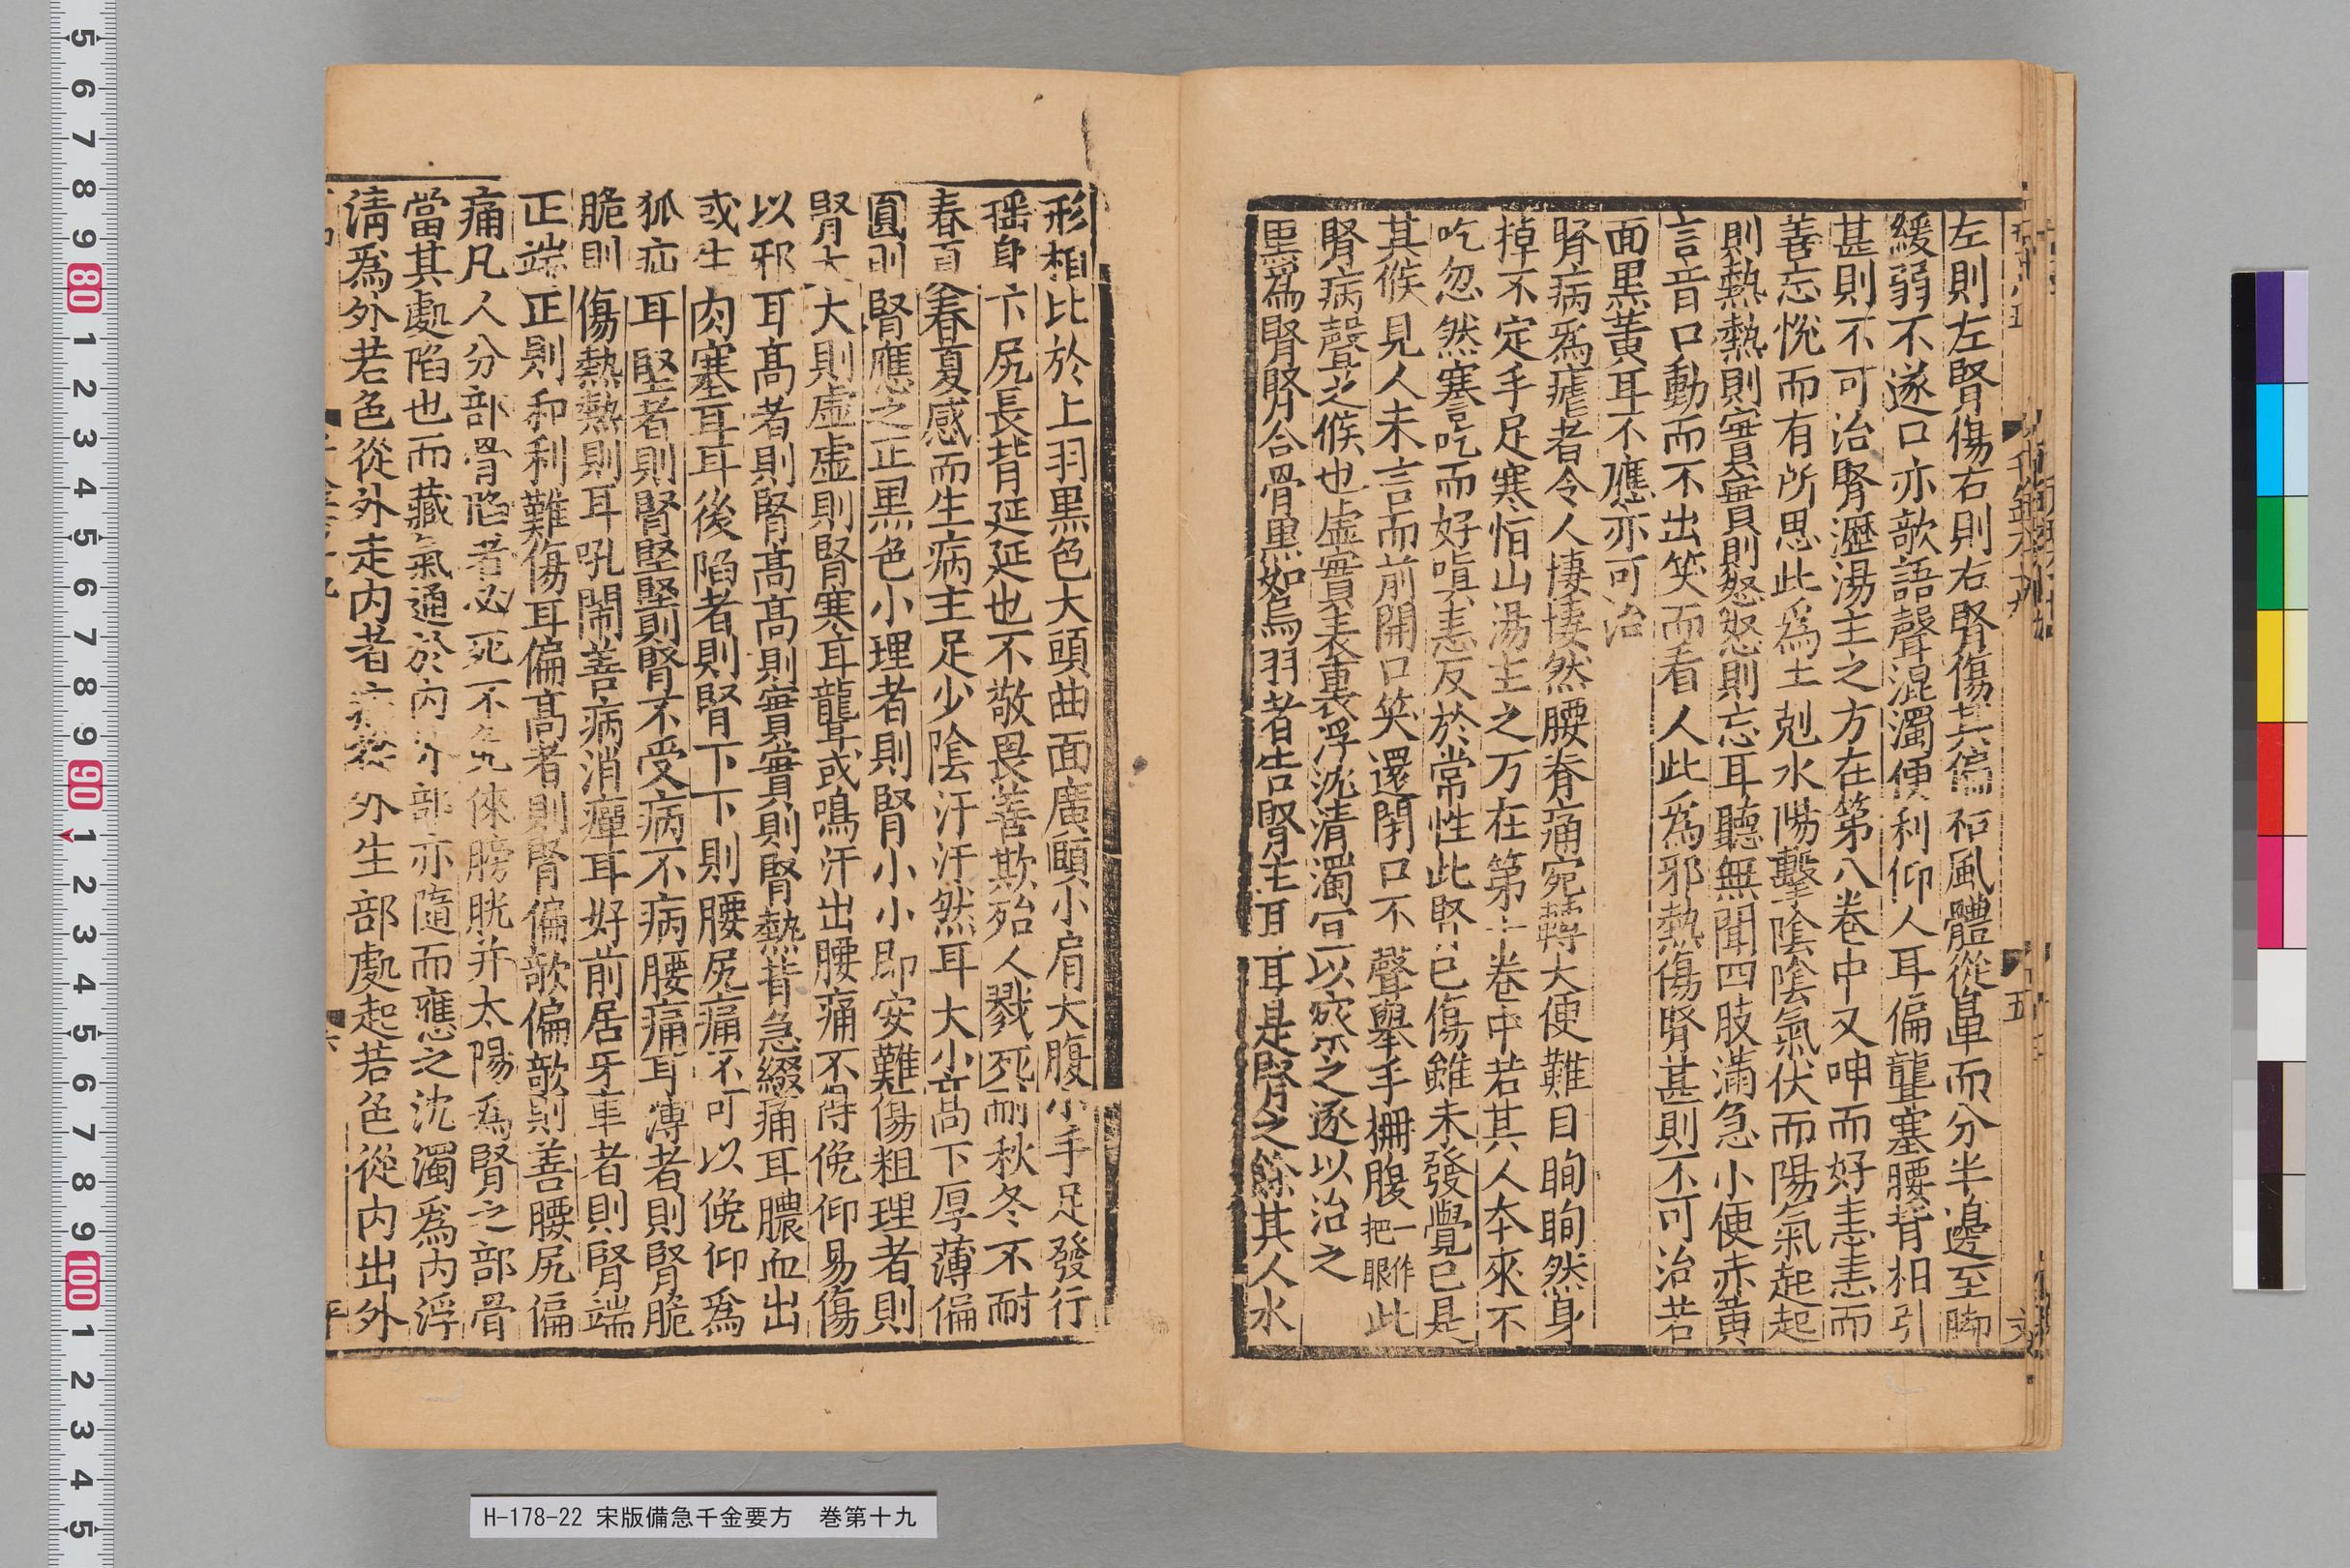 左則左腎傷右則右腎傷其偏枯風體從鼻而分半邊至脚
緩弱不遂口亦欹語聲混濁便利仰人耳偏聾塞腰背相引
甚則不可治腎瀝湯主之方在第八卷中又呻而好恚恚而
善忘恍而有所思此爲土剋水陽擊陰陰氣伏而陽氣起起
則熱熱則實實則怒怒則忘耳聽無聞四肢滿急小便赤黃
言音口動而不出笑而看人此爲邪熱傷腎甚則不可治若
面黑黃耳不應亦可治
腎病爲瘧者令人悽悽然腰脊痛宛轉大便難目眴眴然身
掉不定手足寒恒山湯主之方在第十卷中若其人本來不
吃忽然謇吃而好嗔恚反於常性此腎已傷雖未發覺已是
其候見人未言而前開口笑還閉口不聲舉手柵腹一作把眼此
腎病聲之候也虛實表裏浮沈清濁宜以察之逐以治之
黑爲腎腎合骨黑如烏羽者吉腎主耳耳是腎之餘其人水
形相比於上羽黑色大頭曲面廣頤小肩大腹小手足發行
搖身下尻長背延延也不敬畏善欺殆人戮死耐秋冬不耐
春夏春夏感而生病主足少陰汗汗然耳大小高下厚薄偏
圓則腎應之正黑色小理者則腎小小即安難傷粗理者則
腎大大則虛虛則腎寒耳聾或鳴汗出腰痛不得俛仰易傷
以邪耳高者則腎高高則實實則腎熱背急綴痛耳膿血出
或生肉塞耳耳後陷者則腎下下則腰尻痛不可以俛仰爲
狐疝耳堅者則腎堅堅則腎不受病不病腰痛耳薄者則腎脆
脆則傷熱熱則耳吼鬧善病消癉耳好前居牙車者則腎端
正端正則和利難傷耳偏高者則腎偏欹偏欹則善腰尻偏
痛凡人分部骨陷者必死不免俠膀胱并太陽爲腎之部骨
當其處陷也而藏氣通於內外部亦隨而應之沈濁爲內浮
清爲外若色從外走內者病從外生部處起若色從內出外
H-178-22 宋版備急千金要方　巻第十九